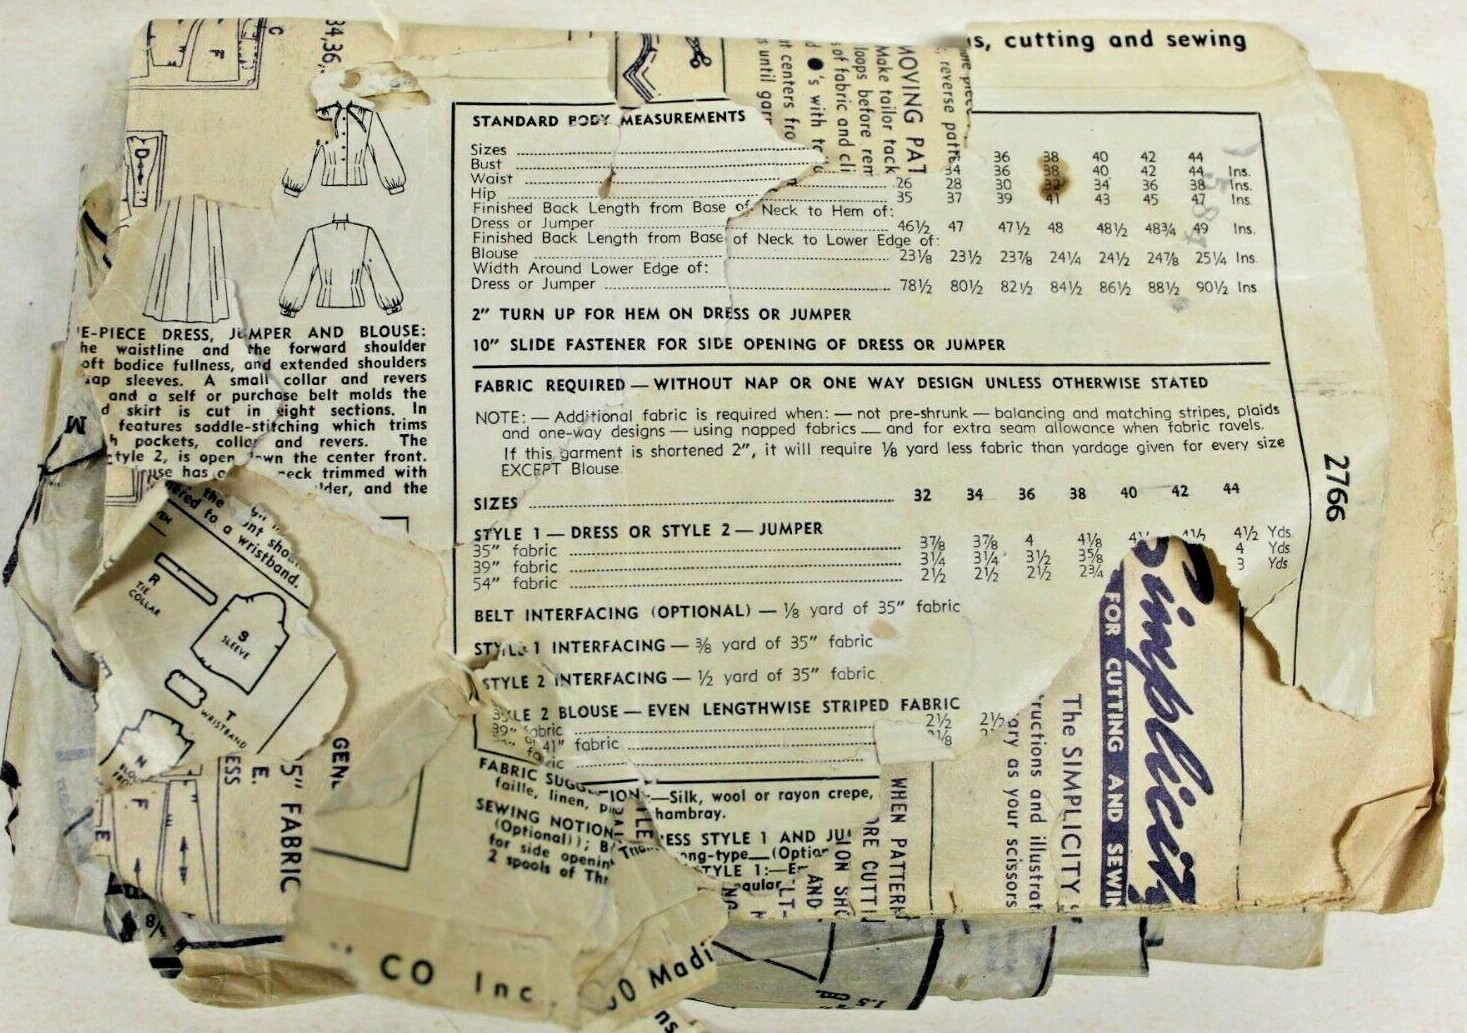 34,36,
C
F
D
s, cutting and sewing
MOVING PAT
Make tailor tack
loops before rem
of fabric and cli
's with tr
t centers fro
s until garr
reverse patte
STANDARD BODY MEASUREMENTS
Sizes 36 38 40 42 44
Bust 34 36 38 40 42 44 Ins.
Waist 26 28 30 32 34 36 38 Ins.
Hip 35 37 39 41 43 45 47 Ins.
Finished Back Length from Base of Neck to Hem of:
Dress or Jumper 46½ 47 47½ 48 48½ 48¾ 49 Ins.
Finished Back Length from Base of Neck to Lower Edge of:
Blouse 23⅛ 23½ 23⅞ 24¼ 24½ 24⅞ 25¼ Ins.
Width Around Lower Edge of:
Dress or Jumper 78½ 80½ 82½ 84½ 86½ 88½ 90½ Ins.
2" TURN UP FOR HEM ON DRESS OR JUMPER
10" SLIDE FASTENER FOR SIDE OPENING OF DRESS OR JUMPER
FABRIC REQUIRED — WITHOUT NAP OR ONE WAY DESIGN UNLESS OTHERWISE STATED
NOTE: — Additional fabric is required when: — not pre-shrunk — balancing and matching stripes, plaids
and one-way designs — using napped fabrics — and for extra seam allowance when fabric ravels.
If this garment is shortened 2", it will require ⅛ yard less fabric than yardage given for every size
EXCEPT Blouse.
SIZES 32 34 36 38 40 42 44
STYLE 1 — DRESS OR STYLE 2 — JUMPER
35" fabric 3⅞ 3⅞ 4 4⅛ 4½ 4½ Yds.
39" fabric 3¼ 3¼ 3½ 3⅝ 4 Yds.
54" fabric 2½ 2½ 2½ 2¾ 3 Yds.
BELT INTERFACING (OPTIONAL) — ⅛ yard of 35" fabric
STYLE 1 INTERFACING — ⅜ yard of 35" fabric
STYLE 2 INTERFACING — ½ yard of 35" fabric
STYLE 2 BLOUSE — EVEN LENGTHWISE STRIPED FABRIC
fabric 2½ 2½
39" or 41" fabric
FABRIC SUGG ION :—Silk, wool or rayon crepe,
faille, linen, hambray.
SEWING NOTION ESS STYLE 1 AND JU
(Optional)); B ong-type—(Option
for side openin TYLE 1:—E
2 spools of Thr
'E-PIECE DRESS, JUMPER AND BLOUSE:
he waistline and the forward shoulder
oft bodice fullness, and extended shoulders
ap sleeves. A small collar and revers
and a self or purchase belt molds the
d skirt is cut in eight sections. In
features saddle-stitching which trims
h pockets, collar and revers. The
tyle 2, is open down the center front.
use has neck trimmed with
lder, and the
nt shou
ered to a wristband.
M
R
TIE
COLLAR
S
SLEEVE
T
WRISTBAND
N
F
E
ESS
E.
5" FABRIC
GENE
2766
Simplicity
FOR CUTTING AND SEWIN
The SIMPLICITY
ructions and illustrat
ary as your scissors
WHEN PATTERN
ORE CUTTI
ION SHO
AND
LT-
CO Inc.
00 Madi
ns
1.5 cm.